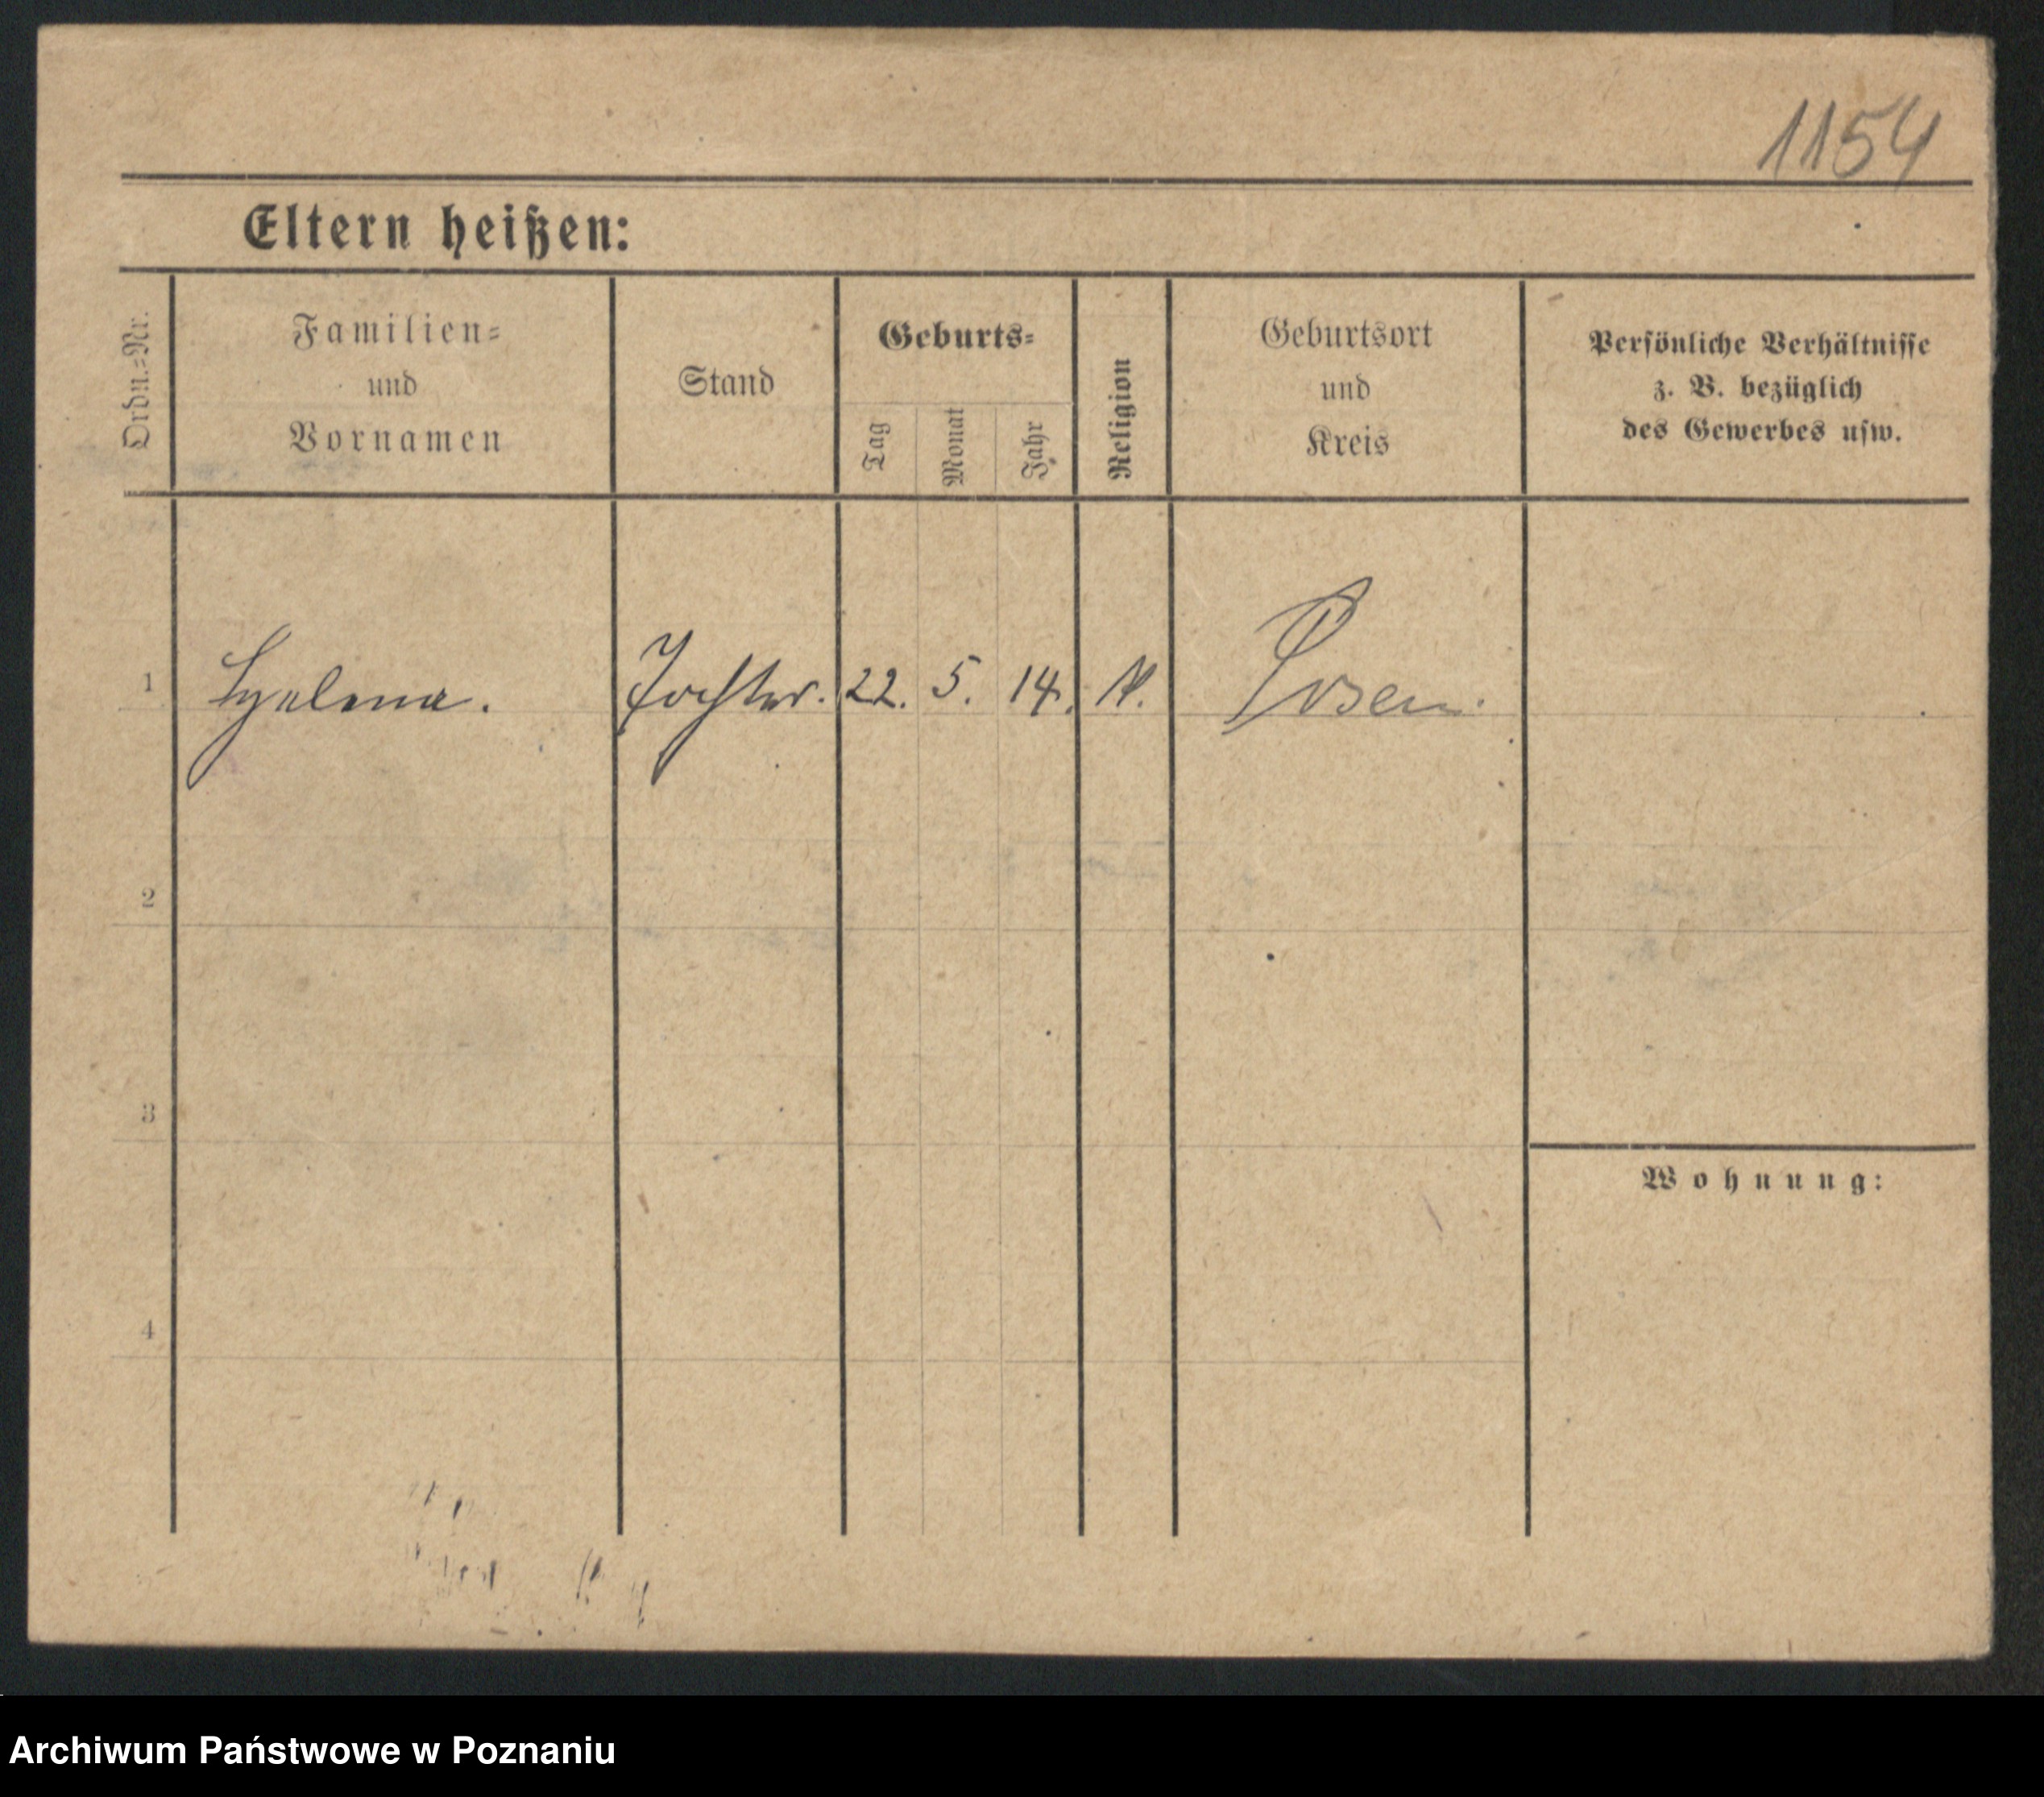 1154
Eltern heißen:
Ordn.-Nr.
Familien-
und
Vornamen
Stand
Geburts-
Tag
Monat
Jahr
Religion
Geburtsort
und
Kreis
Persönliche Verhältnisse
z. B. bezüglich
des Gewerbes usw.
1 Tochter. 22. 5. 14. Posen.
2
3
4
Wohnung:
Archiwum Państwowe w Poznaniu